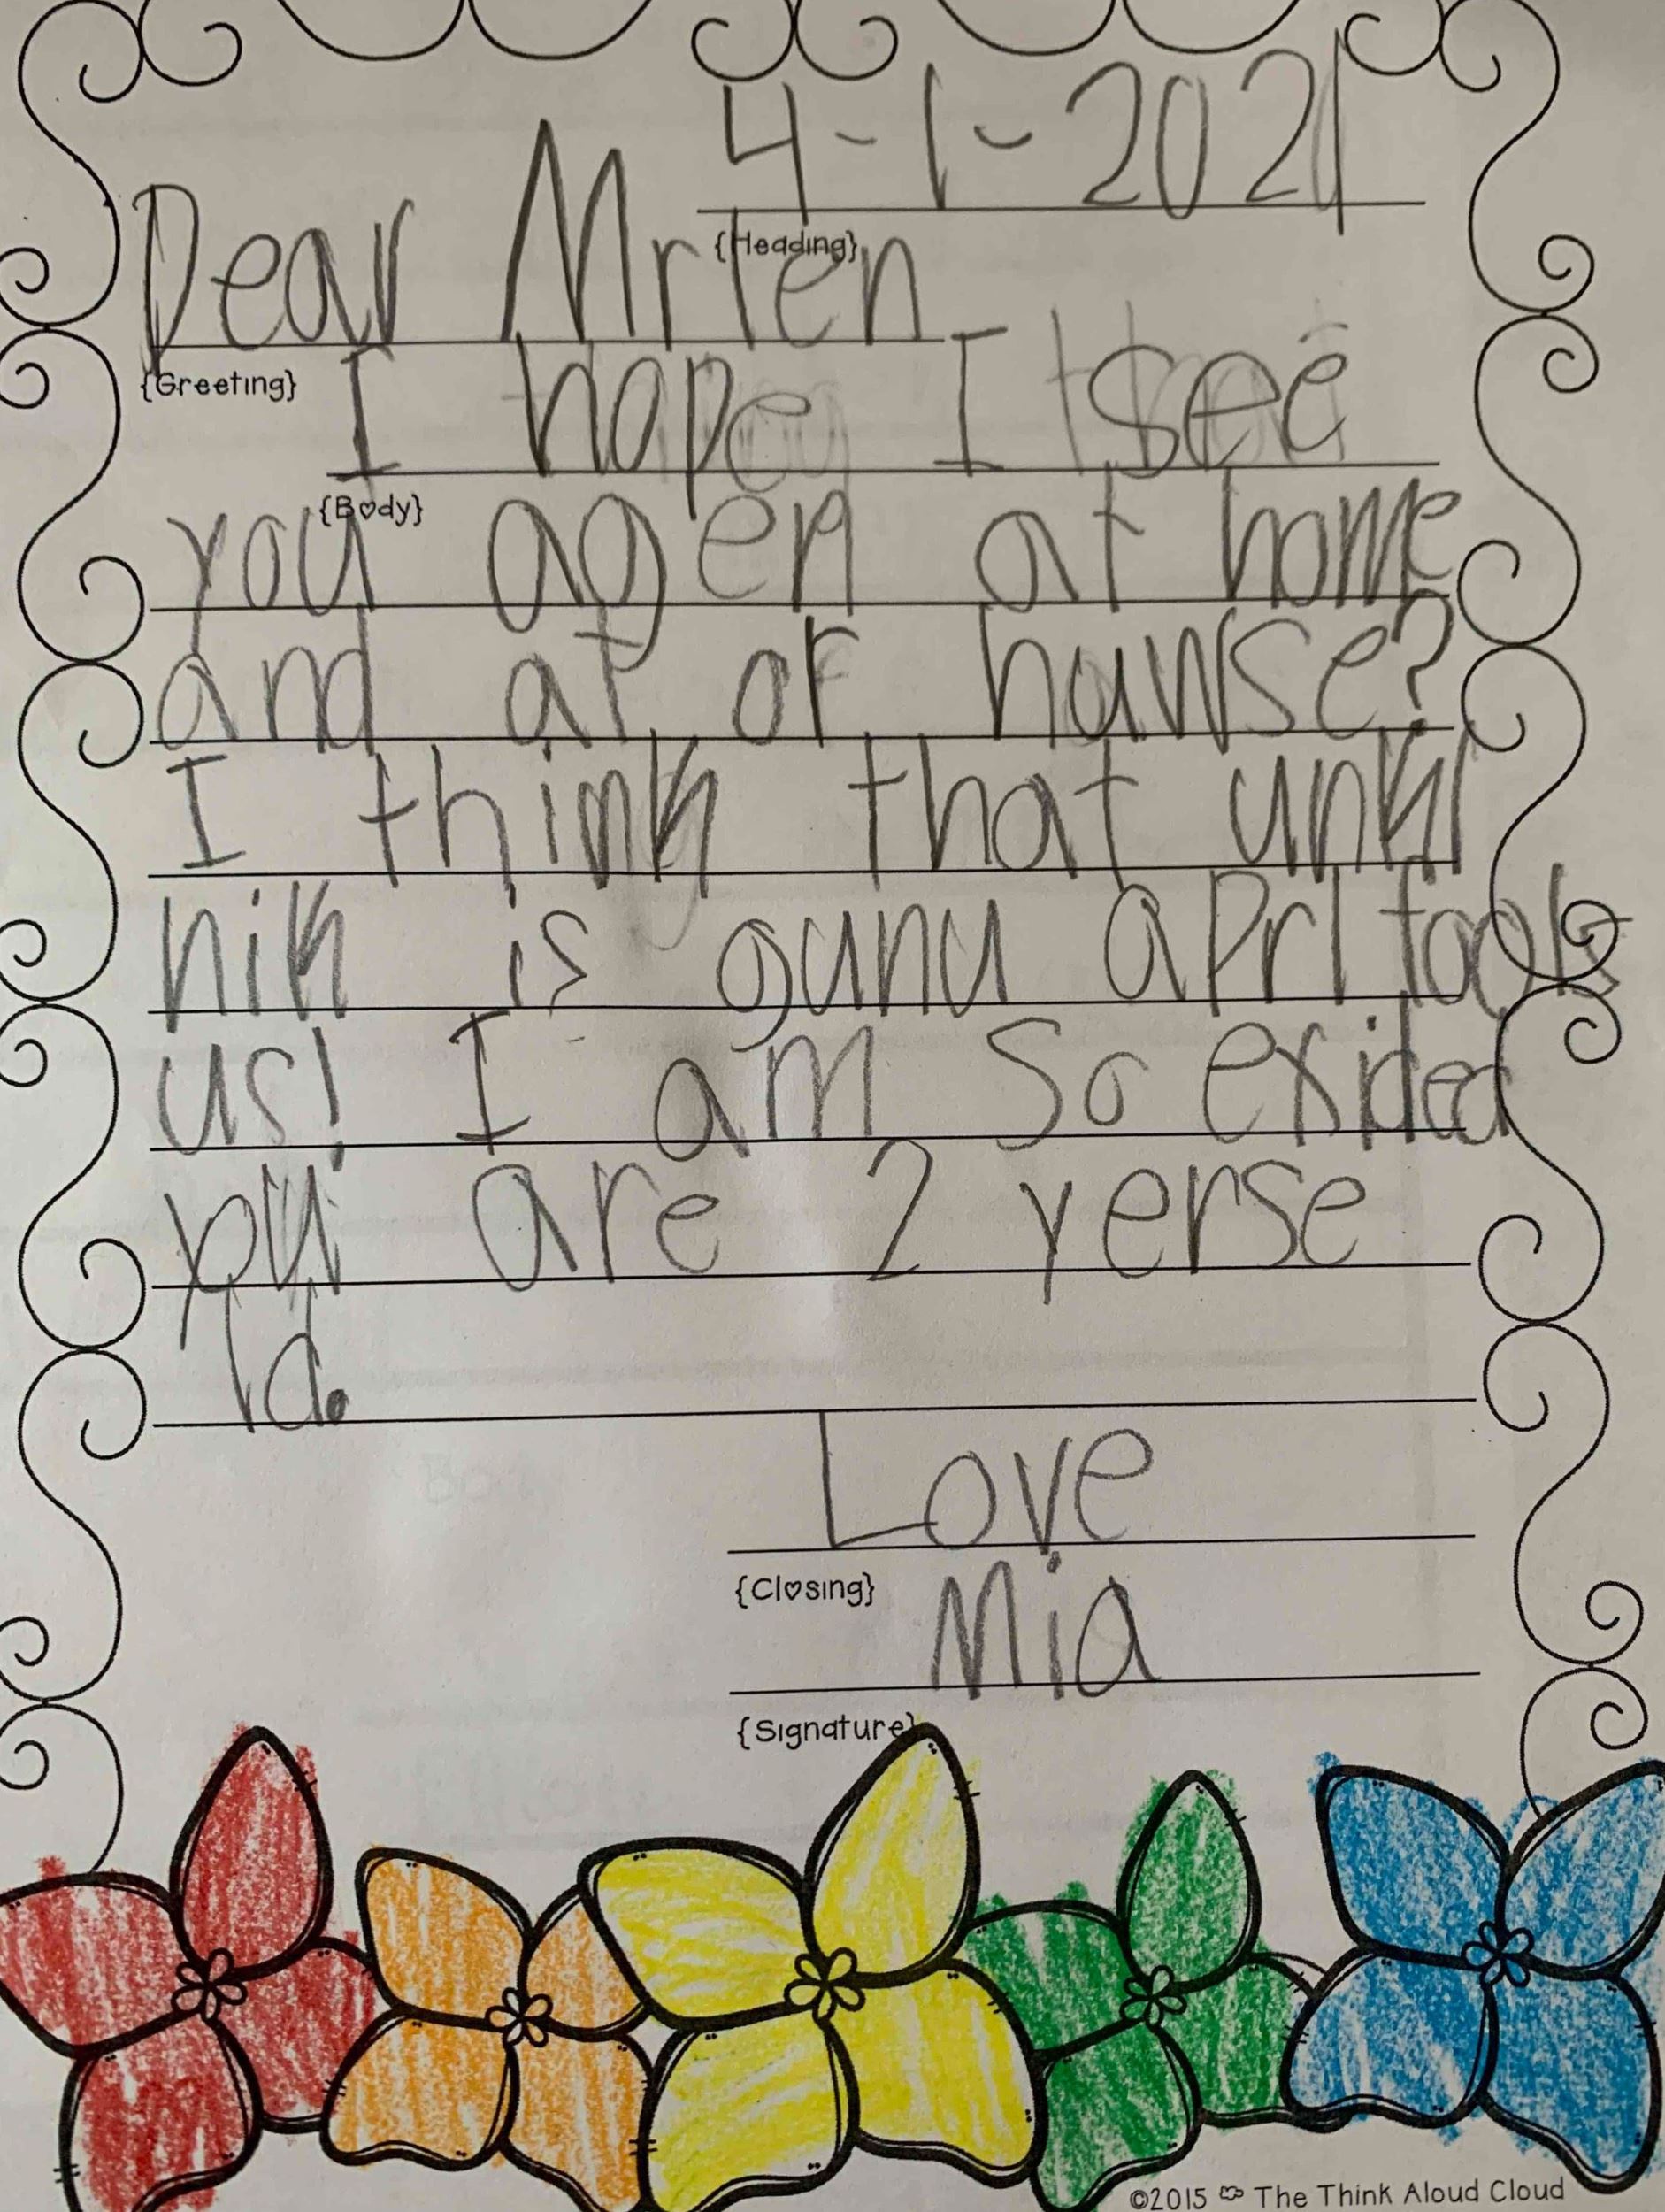 4-1-2021
{Heading}
Dear Mrlen
{Greeting}
I hope I see
{Body}
you agen at home
and at or huwse?
I think that unkl
nik is gunu aprl fools
us! I am so exided
you are 2 yerse
ld.
Love
{Closing}
Mia
{Signature}
©2015 The Think Aloud Cloud